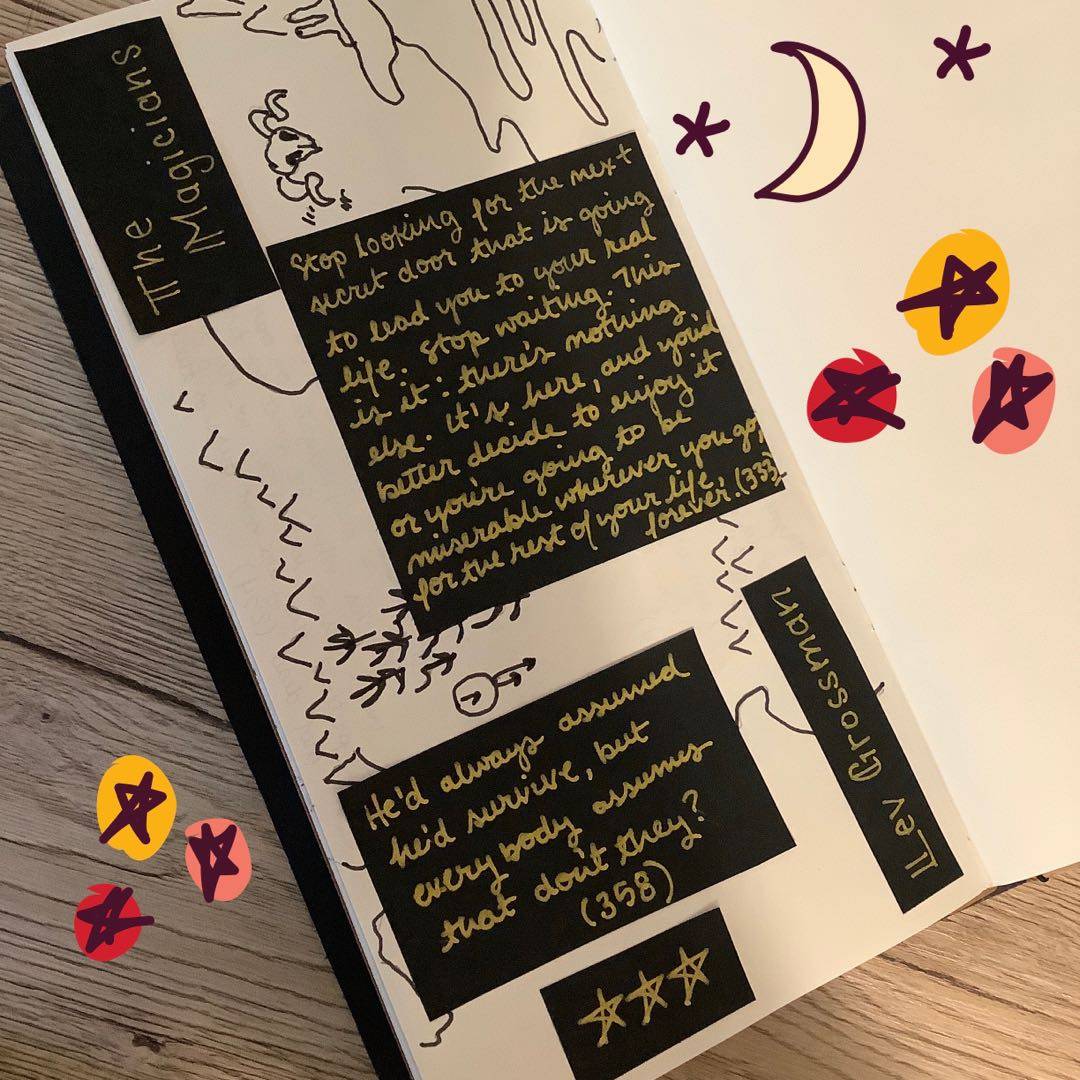 The
Magicians
Stop looking for the next
secret door that is going
to lead you to your real
life. Stop waiting. This
is it: there's nothing
else. It's here, and you'd
better decide to enjoy it
or you're going to be
miserable wherever you go,
for the rest of your life,
forever. (333)
Lev Grossman
He'd always assumed
he'd survive, but
everybody assumes
that don't they?
(358)